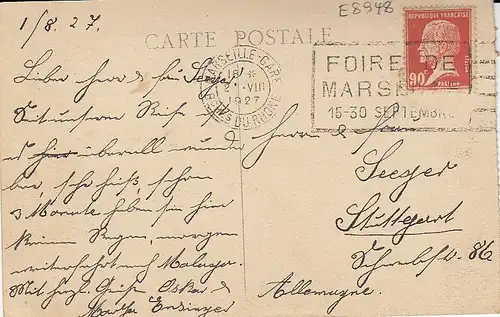 E8948
1/8.27.
CARTE POSTALE
REPUBLIQUE FRANÇAISE
90
PASTEUR
MARSEILLE-GARE
18
VIII
1927
BCHES DU RHONE
FOIRE DE
MARSEILLE
15-30 SEPTEMBRE
Lieber Herr & Frau Seeger
sind überall wunder
bar, sehr heiß, schon
3 Monate haben sie hier
keinen Regen, morgen
weiterfahrt nach Malaga.
Mit herzl. Grüße Oskar &
Martha Enzinger
Herrn & Frau
Seeger
Stuttgart
86
Allemagne.